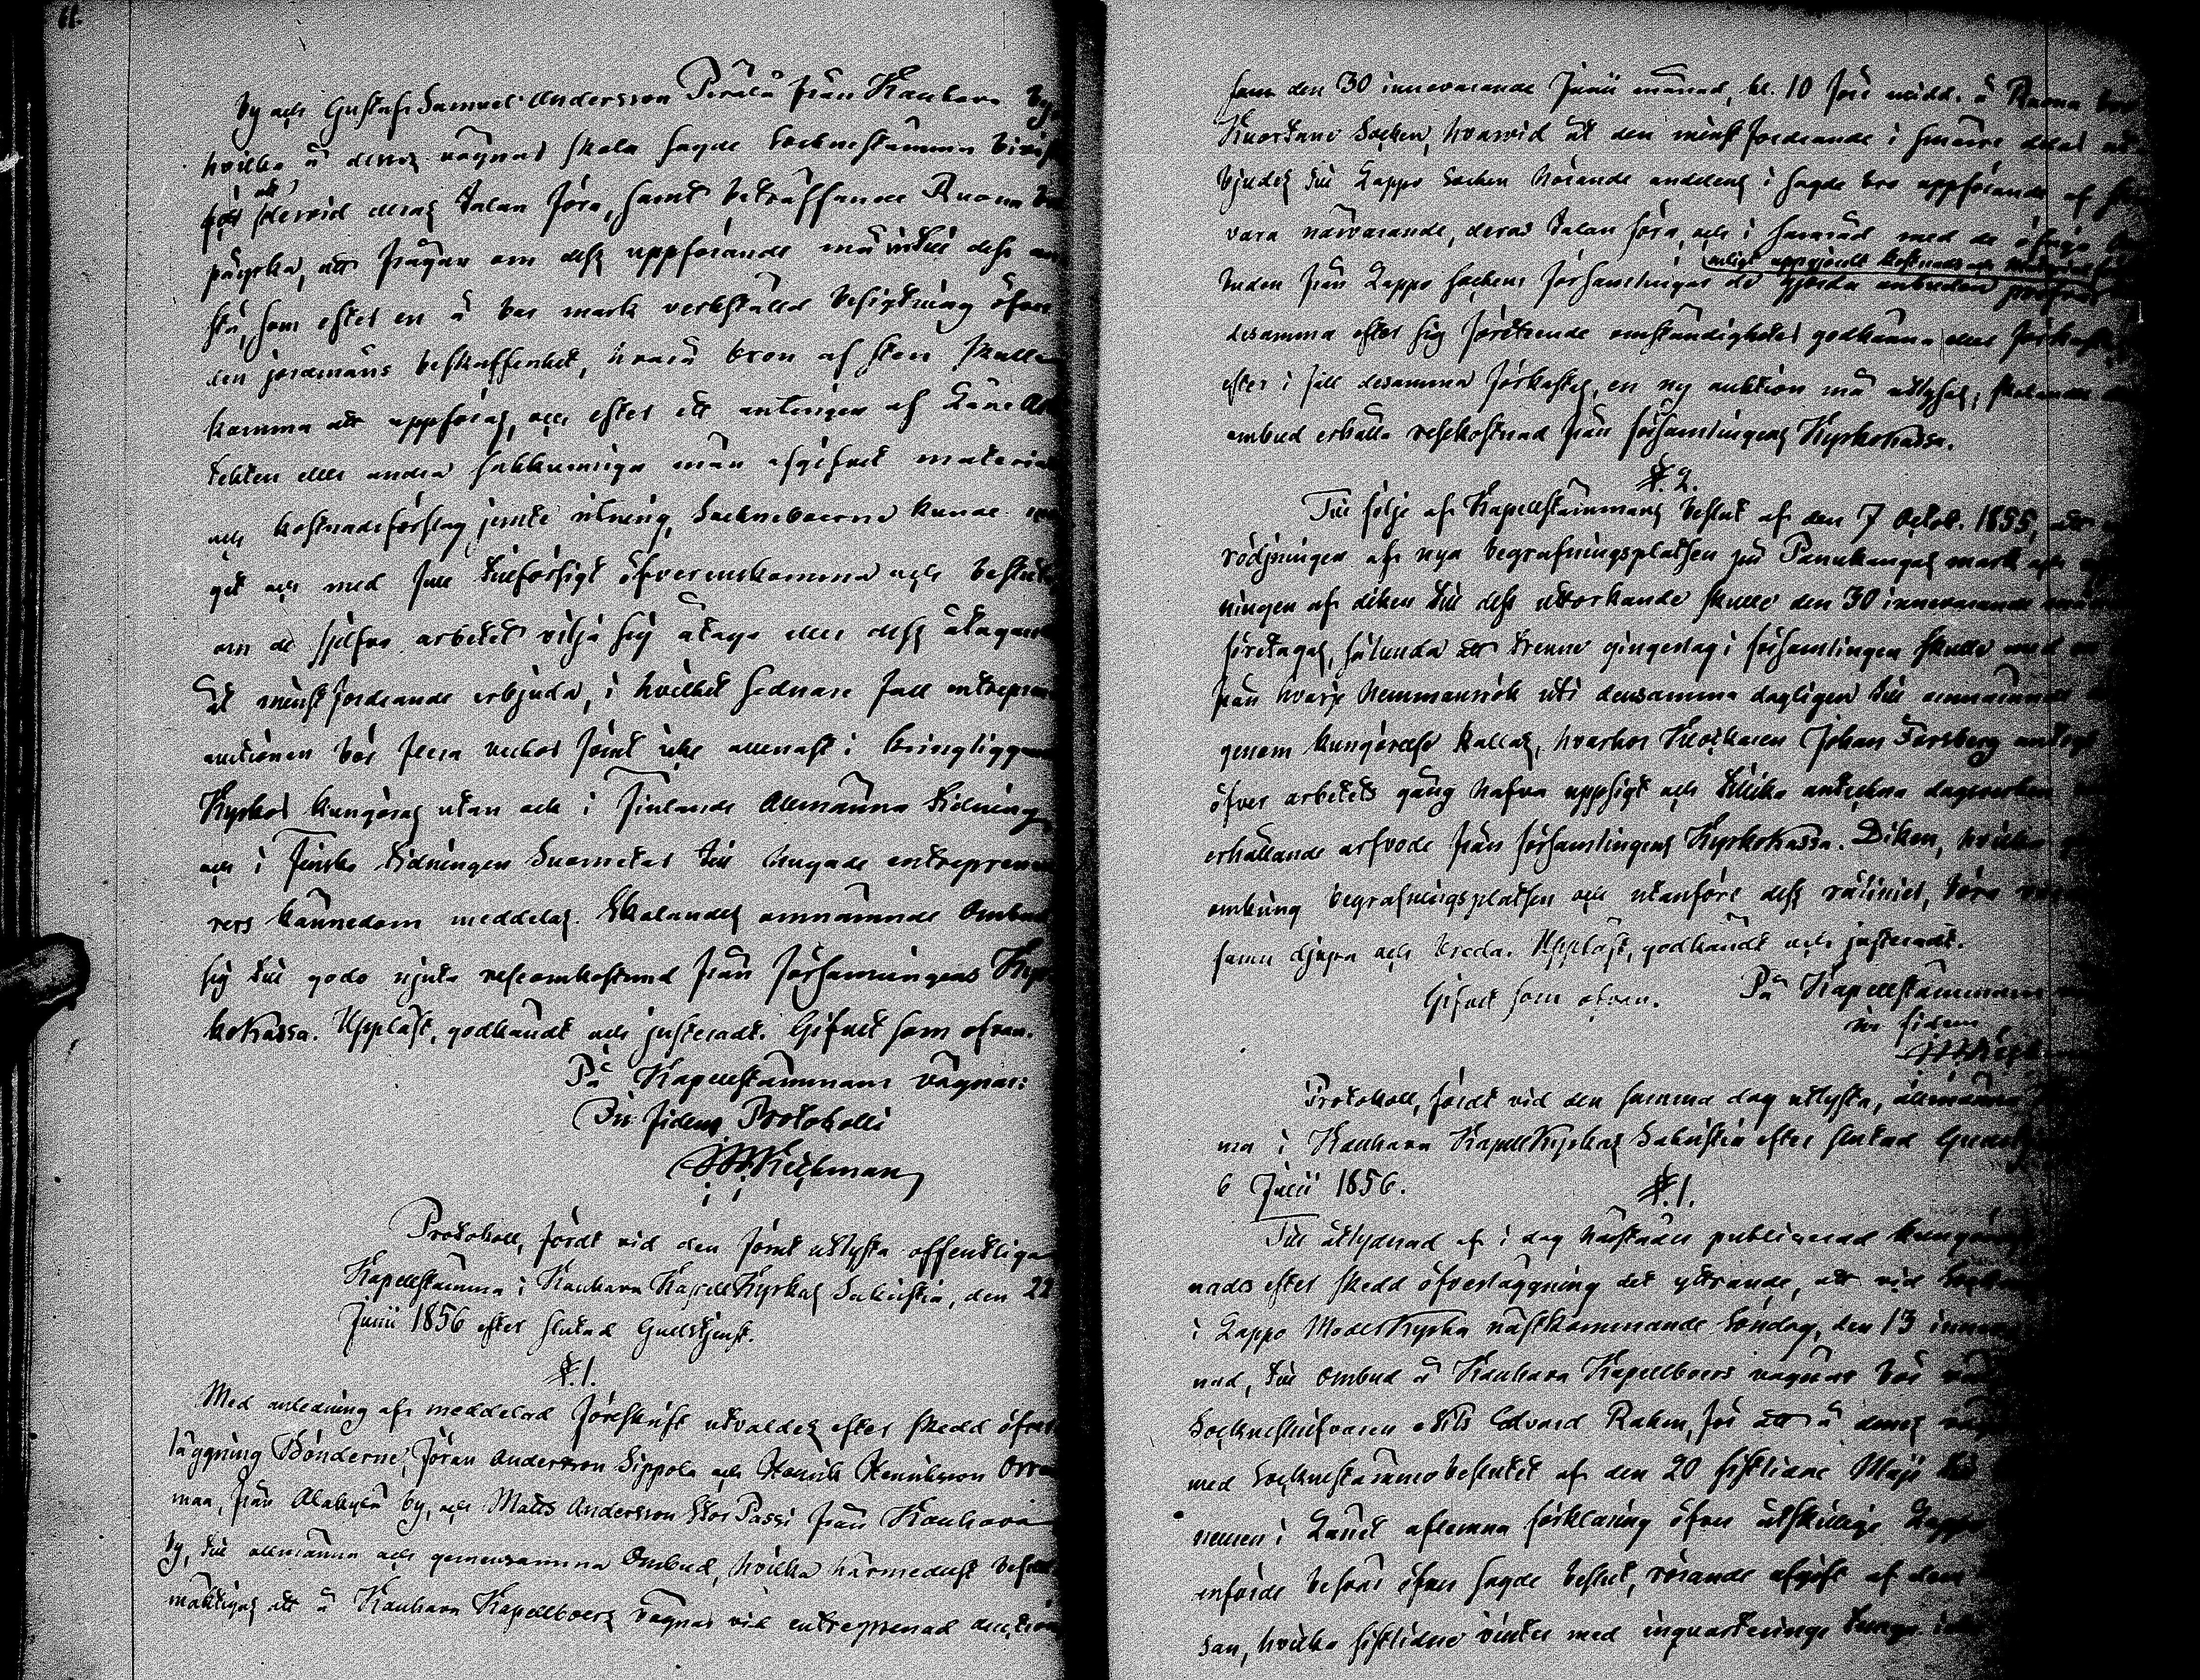 11.
by och Gustaf Samuel Andersson Perälä från Kauhava by
hvilka å deras vägnar skola sagde Sockenstämma bivista
för att dervid deras talan föra, samt beträffande Ruona bro
påyrka, att frågan om dess uppförande må intill dess an-
stå, som efter en å bar mark verkställd besigtning öfver
den jordmåns beskaffenhet, hvarå bron af sten skulle
komma att uppföras, och efter ett antingen af Läne Arki-
tekten eller andra sakkunniga män afgifvet material
och kostnadsförslag jemte ritning, Sockneboerne kunde
get och med full tillförsigt öfverenskomma och besluta
om de sjelfva arbetet vilja sig åtaga eller dess åtagande
åt minstfordrande erbjuda, i hvilket sednare fall entreprenad
auctionen bör flera veckor förut icke allenast i kringliggande
Kyrkor kungöras utan och i Finlands Allmänna Tidning
och i Finska tidningen Suometar till hugade entreprenö-
rers kännedom meddelas. Skolandes omnämnde Ombud
sig till godo njuta reseomkostnad från Församlingens Kyr-
kokassa. Uppläst, godkändt och justeradt. Gifvet som ofvan.
På Kapellstämmans vägnar:
In fidem Protokolli
Protokoll, fördt vid den förut utlysta offentliga
Kapellstämma i Kauhava KapellKyrkas Sakristia, den 22
Junii 1856 efter slutad Gudstjenst.
§. 1.
Med anledning af meddelad föreskrift utvaldes efter skedd öfver-
läggning Bönderne, Jöran Andersson Sippola och Henrik Henriksson Orre-
maa, från Alakylä by, och Matts Andersson Stor Passi från Kauhava
by, till allmänna och gemensamma Ombud, hvilka härmedelst befull-
mäktigas att å Kauhava Kapellboers vägnar vid entreprenad auction
som den 30 innevarande Junii månad, kl. 10 före midd. å Ruona bro
Kuortane Socken, hvarvid åt den minstfordrande i smärre delar ut-
bjudes till Lappo Socken hörande andelens i sagde bro uppförande af sten
vara närvarande, deras talan föra, och i samråd med de öfriga
enligt uppgjordt kostnads och
buden från Lappo Sockens församlingar de gjorda anbuden pröfva
desamma efter sig företeende omständigheter godkänna eller förkasta
efter i fall desamma förkastas, en ny auktion må utlysas, skolande
ombud erhålla resekostnad från församlingens Kyrkokassa.
§. 2.
Till följe af Kapellstämmans beslut af den 7 Octob. 1855, att
rödjningen af nya begrafningsplatsen på Panukangas mark och
ningen af diken till dess uttorkande skulle den 30 innevarande
företagas, sålunda att trenne gingerlag i församlingen skulle med
från hvarje hemmansrök uti densamma dagligen till omnämnde
genom kungörelse kallas, hvarhos Klockaren Johan Forsberg
öfver arbetets gång hafva uppsigt och tillika anteckna dagsverken
erhållande arfvode från församlingens Kyrkokassa. Diken, hvilka
omkring begrafningsplatsen och utanföre dess rålinier, böra
famn djupa och breda. Uppläst, godkändt och justeradt.
Gifvet som ofvan. På Kapellstämmans
in fidem
Protokoll, fördt vid den samma dag utlysta, allmänna
ma i Kauhava KapellKyrkas Sakristia efter slutad Gudstjenst
6 Julii 1856.
§. 1.
Till åtlydnad af i dag härstädes publicerad kungörelse
nades efter skedd öfverläggning det yttrande, att vid
i Lappo ModerKyrka nästkommande Söndag, den 13
nad, till ombud å Kauhava Kapellboers vägnar bör
Sockneskrifvaren Nils Edvard Rahm, för att å dennes
med Sockenstämmobeslutet af den 20 sistlidne Maji
nemen i Länet aflemna förklaring öfver åtskillige Lappo
anförde besvär öfver sagde beslut, rörande afgift af
san, hvilka sistlidne vinter med inquarterings tunga